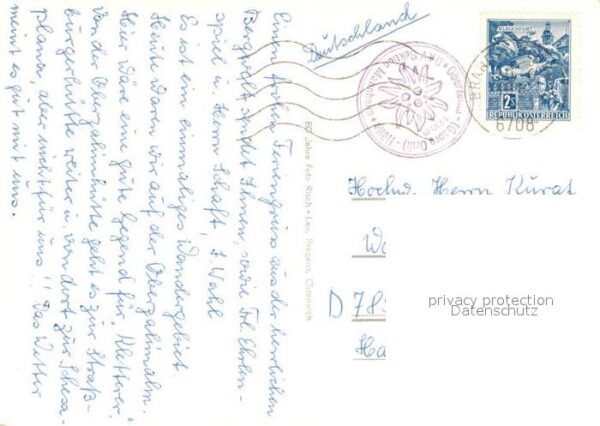 Einen frohen Feriengruss aus der herrlichen
Bergwelt sendet Ihnen, sowie Frl. Ehrlen-
spiel u. Herrn Schaft, I. Wahl
Es ist ein einmaliges Wandergebiet.
Heute waren wir auf der Oberzalimalm.
Hier wäre eine gute Gegend für "Kletterer".
Von der Oberzalimhütte geht es zur Straß-
burgerhütte weiter u. von dort zur Schesa-
plana, aber nicht für uns!! Das Wetter
meint es gut mit uns.
Foto Risch-Lau, Bregenz, Österreich
Deutschland
KLAGENFURT
2S
REPUBLIK ÖSTERREICH
BRAND
6708
Hochw. Herrn Kurat
D 78
Ha
privacy protection
Datenschutz